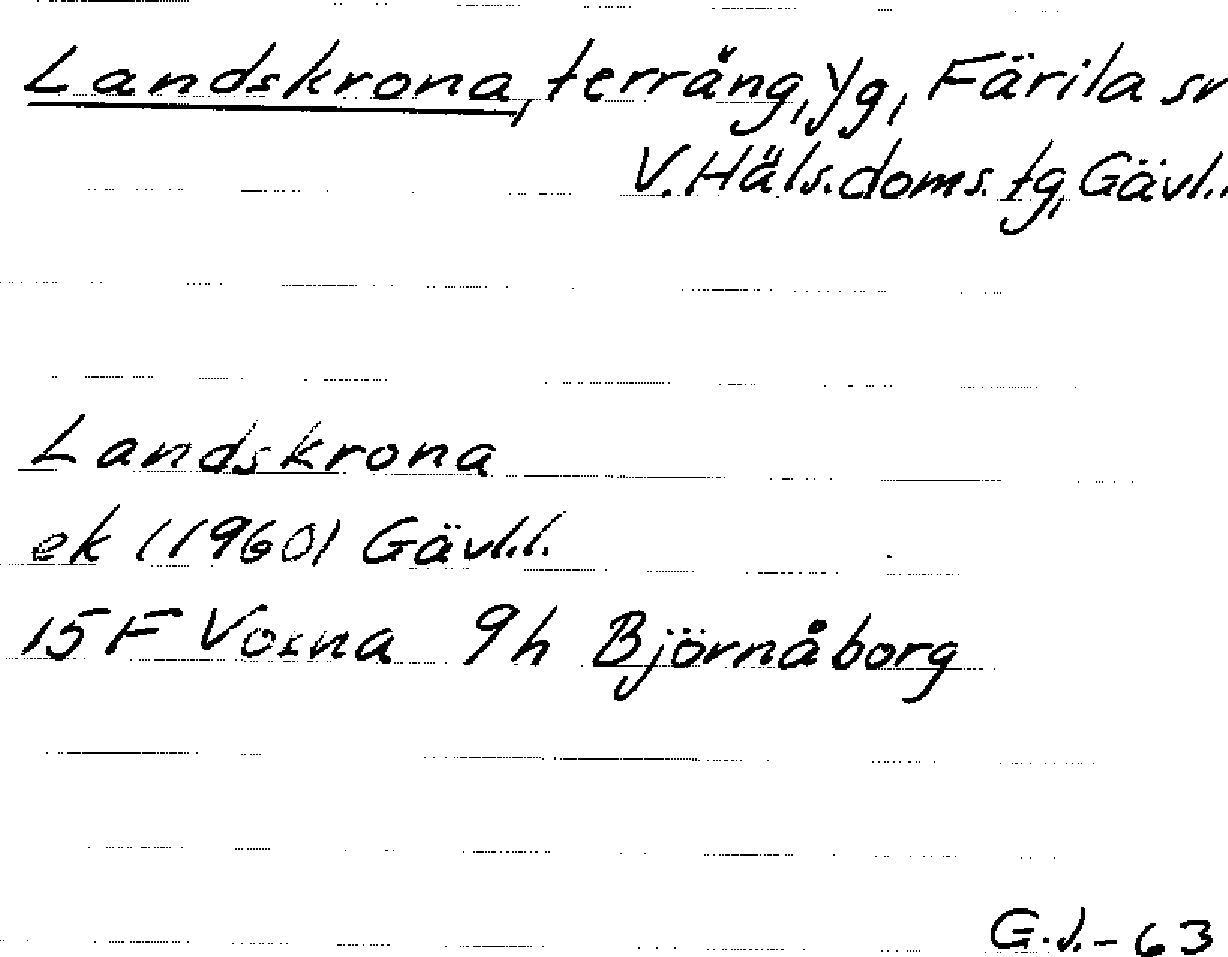 Landskrona, terräng, yg, Färila sn
V. Häls. doms. tg, Gävl.
Landskrona
ek (1960) Gävl.l.
15 F Voxna 9h Björnåborg
G.J.-63